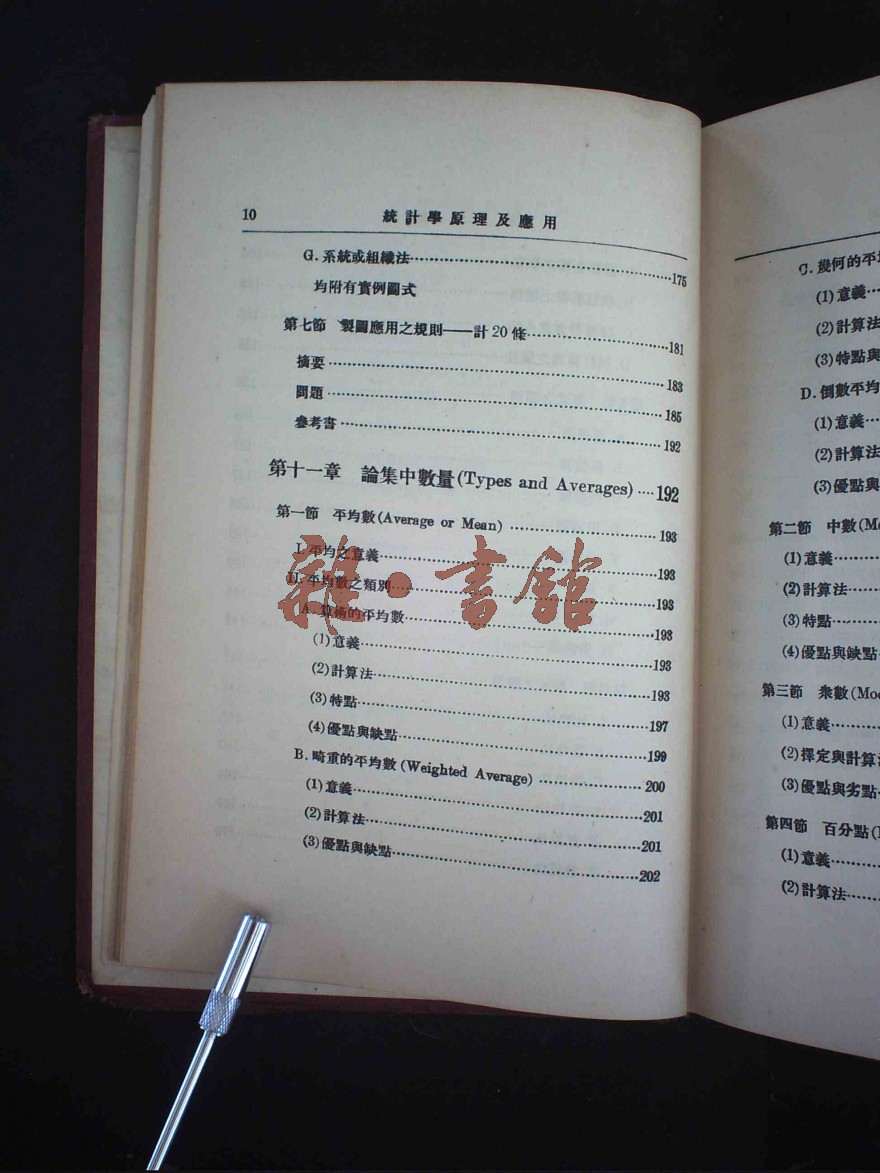 10 統計學原理及應用
G. 系統或組織法……175
均附有實例圖式
第七節 製圖應用之規則——計20條……181
摘要……183
問題……185
參考書……192
第十一章 論集中數量(Types and Averages)……192
第一節 平均數(Average or Mean)……193
I. 平均之意義……193
II. 平均數之類別……193
A. 算術的平均數……193
(1)意義……193
(2)計算法……193
(3)特點……197
(4)優點與缺點……199
B. 畸重的平均數(Weighted Average)……200
(1)意義……201
(2)計算法……201
(3)優點與缺點……202
雜·書館
C. 幾何的平均
(1)意義…
(2)計算法
(3)特點與
D. 倒數平均
(1)意義…
(2)計算法
(3)優點與
第二節 中數(Me
(1)意義……
(2)計算法…
(3)特點……
(4)優點與缺點
第三節 衆數(Mod
(1)意義……
(2)擇定與計算
(3)優點與劣點
第四節 百分點(
(1)意義……
(2)計算法……